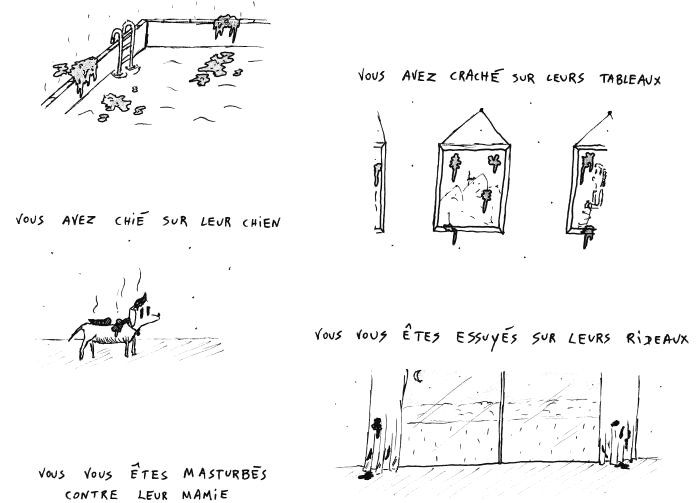 VOUS AVEZ CHIÉ SUR LEUR CHIEN
VOUS VOUS ÊTES MASTURBÉS
CONTRE LEUR MAMIE
VOUS AVEZ CRACHÉ SUR LEURS TABLEAUX
VOUS VOUS ÊTES ESSUYÉS SUR LEURS RIDEAUX